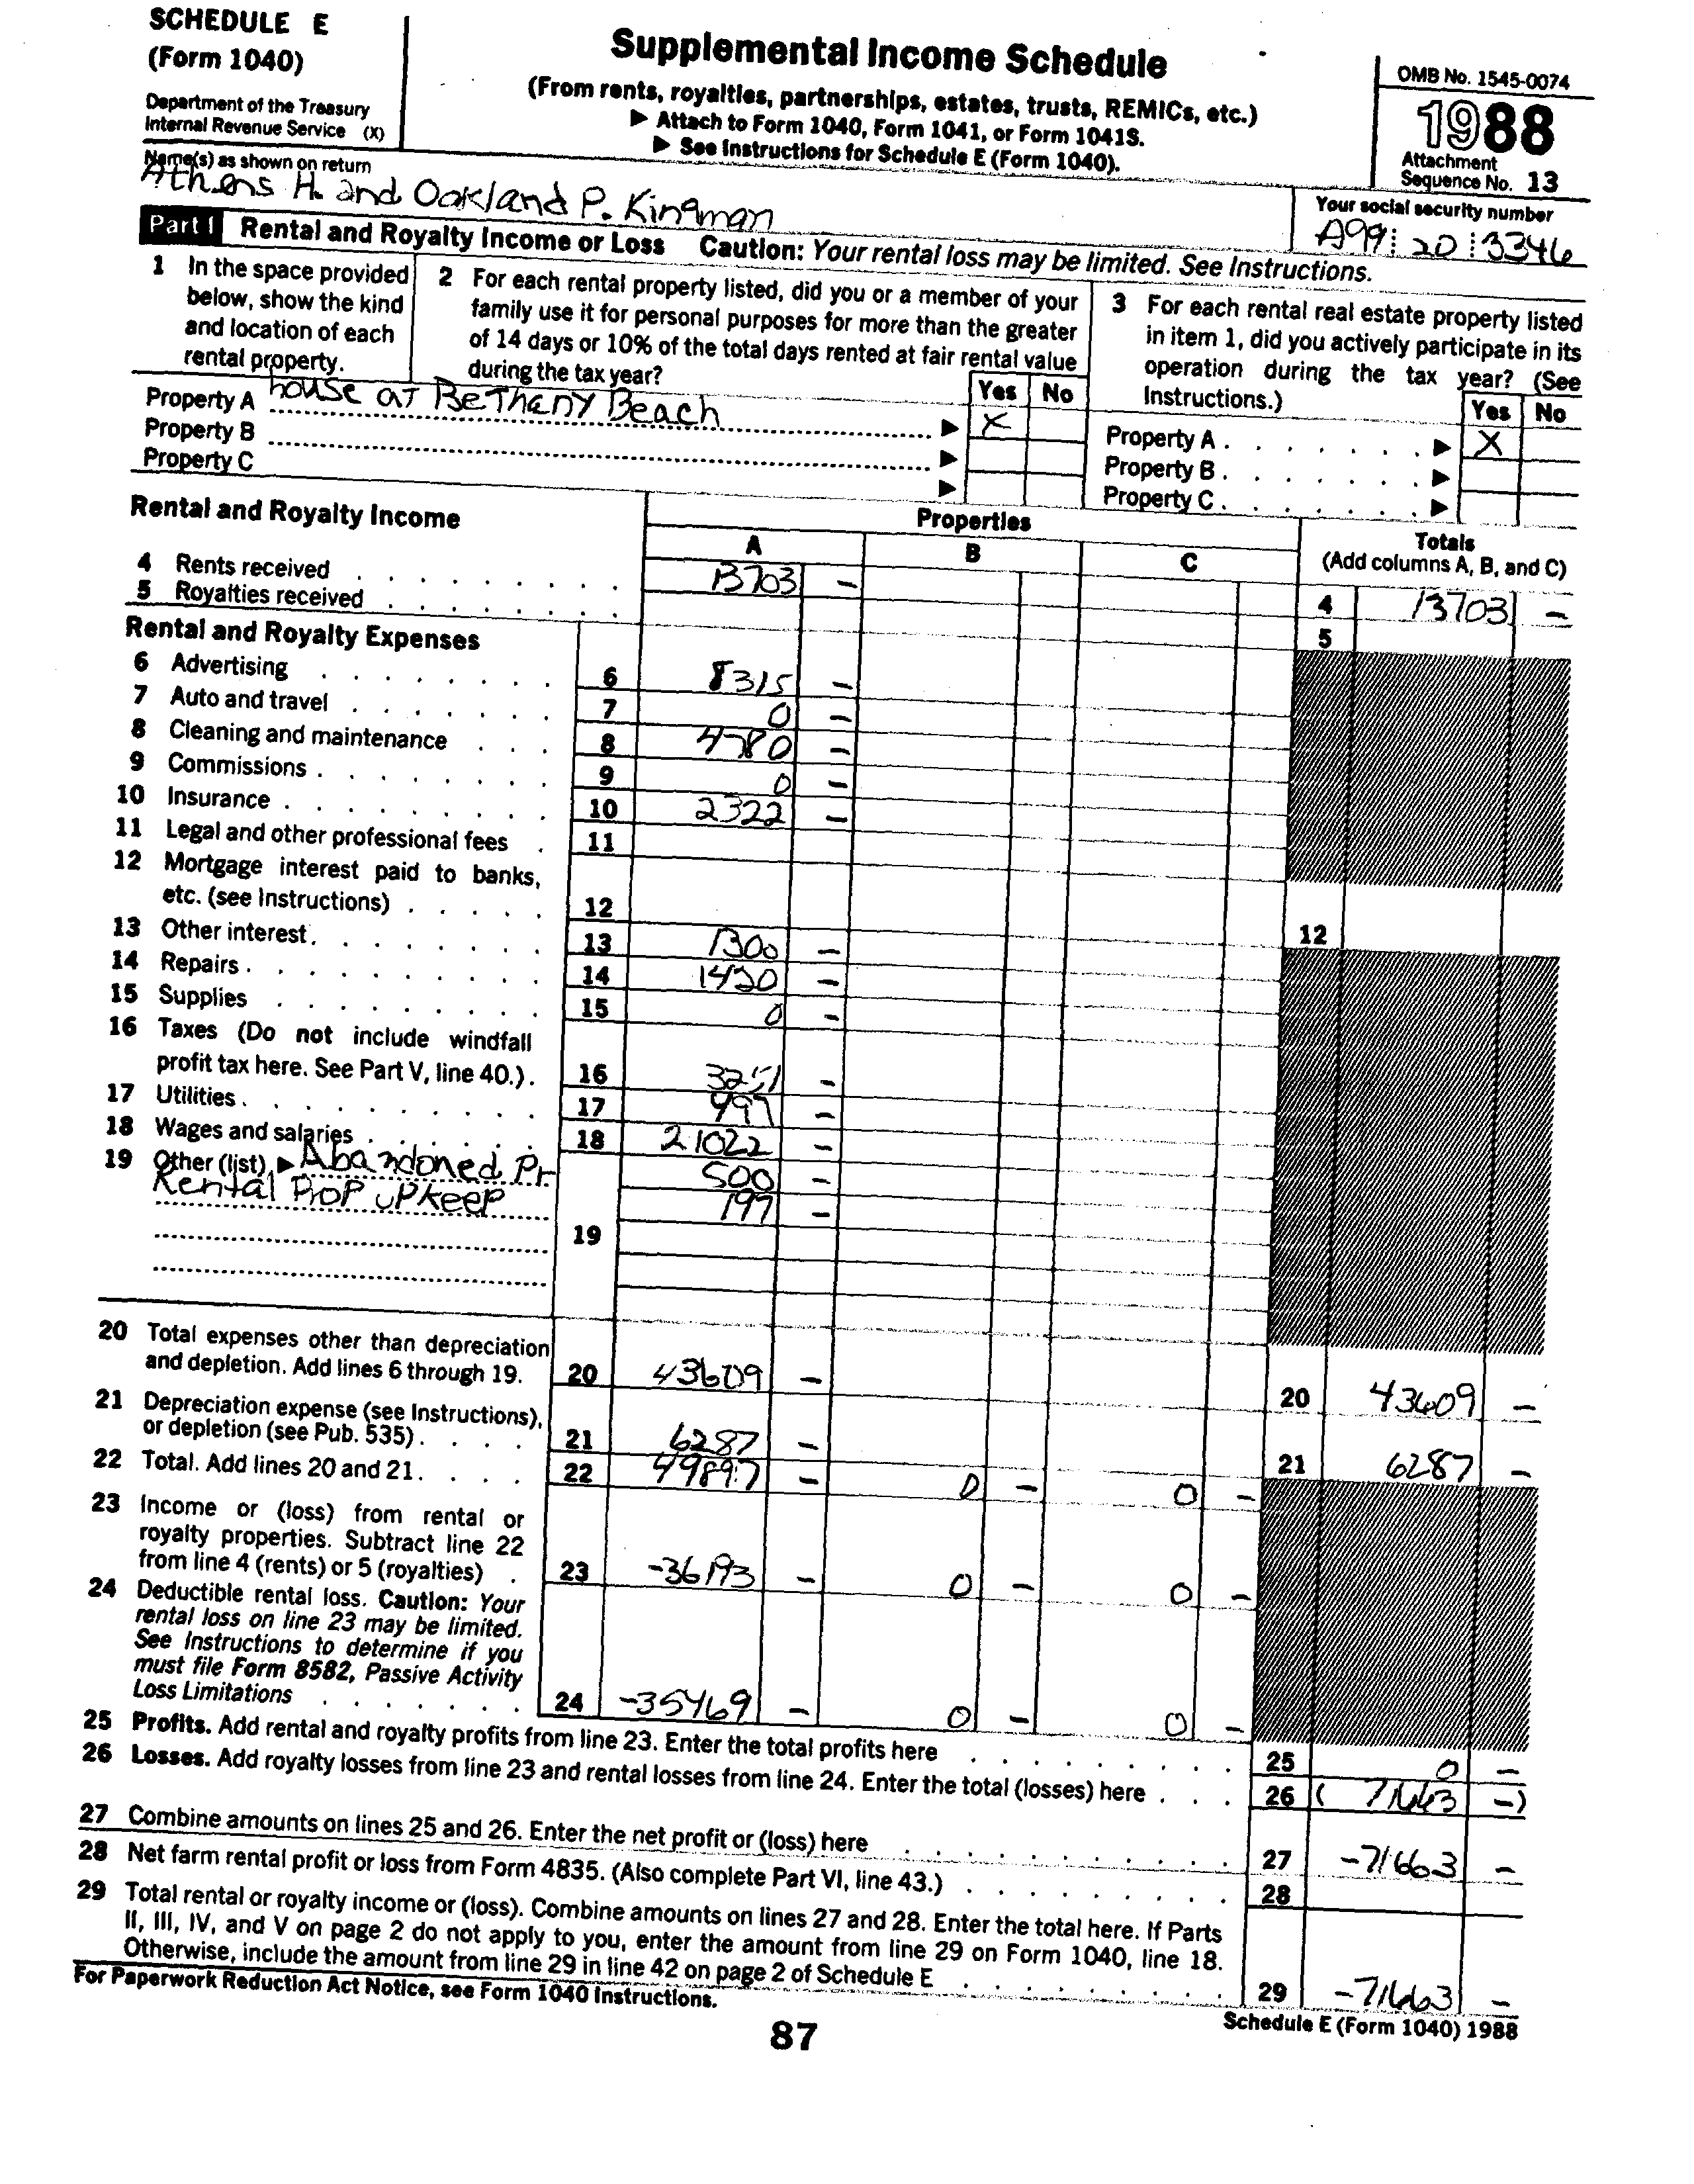 SCHEDULE E
(Form 1040)
Department of the Treasury
Internal Revenue Service (X)
Supplemental Income Schedule
(From rents, royalties, partnerships, estates, trusts, REMICs, etc.)
▶ Attach to Form 1040, Form 1041, or Form 1041S.
▶ See Instructions for Schedule E (Form 1040).
OMB No. 1545-0074
1988
Attachment
Sequence No. 13
Name(s) as shown on return
Athens H. and Oakland P. Kingman
Your social security number
A99 20 3346
Part I Rental and Royalty Income or Loss Caution: Your rental loss may be limited. See Instructions.
1 In the space provided
below, show the kind
and location of each
rental property.
2 For each rental property listed, did you or a member of your
family use it for personal purposes for more than the greater
of 14 days or 10% of the total days rented at fair rental value
during the tax year?
Yes No
3 For each rental real estate property listed
in item 1, did you actively participate in its
operation during the tax year? (See
Instructions.)
Yes No
Property A house at Bethany Beach ▶ X
Property B ▶
Property C ▶
Property A ▶ X
Property B ▶
Property C ▶
Rental and Royalty Income
Properties
A B C
Totals
(Add columns A, B, and C)
4 Rents received 13703 – 4 13703 –
5 Royalties received 5
Rental and Royalty Expenses
6 Advertising 6 8315 –
7 Auto and travel 7 0 –
8 Cleaning and maintenance 8 4780 –
9 Commissions 9 0 –
10 Insurance 10 2322 –
11 Legal and other professional fees 11
12 Mortgage interest paid to banks,
etc. (see Instructions) 12 12
13 Other interest 13 1300 –
14 Repairs 14 1420 –
15 Supplies 15 0 –
16 Taxes (Do not include windfall
profit tax here. See Part V, line 40.) 16 3251 –
17 Utilities 17 –
18 Wages and salaries 18 21022 –
19 Other (list) ▶ Abandoned Pr 500 –
Rental Prop upkeep –
19
20 Total expenses other than depreciation
and depletion. Add lines 6 through 19. 20 43609 – 20 43609 –
21 Depreciation expense (see Instructions),
or depletion (see Pub. 535) 21 6287 – 21 6287 –
22 Total. Add lines 20 and 21. 22 49897 – 0 – 0 –
23 Income or (loss) from rental or
royalty properties. Subtract line 22
from line 4 (rents) or 5 (royalties) 23 -36193 – 0 – 0 –
24 Deductible rental loss. Caution: Your
rental loss on line 23 may be limited.
See Instructions to determine if you
must file Form 8582, Passive Activity
Loss Limitations 24 -35469 – 0 – 0 –
25 Profits. Add rental and royalty profits from line 23. Enter the total profits here 25 0 –
26 Losses. Add royalty losses from line 23 and rental losses from line 24. Enter the total (losses) here 26 ( 71663 –)
27 Combine amounts on lines 25 and 26. Enter the net profit or (loss) here 27 -71663 –
28 Net farm rental profit or loss from Form 4835. (Also complete Part VI, line 43.) 28
29 Total rental or royalty income or (loss). Combine amounts on lines 27 and 28. Enter the total here. If Parts
II, III, IV, and V on page 2 do not apply to you, enter the amount from line 29 on Form 1040, line 18.
Otherwise, include the amount from line 29 in line 42 on page 2 of Schedule E 29 -71663 –
For Paperwork Reduction Act Notice, see Form 1040 Instructions.
Schedule E (Form 1040) 1988
87